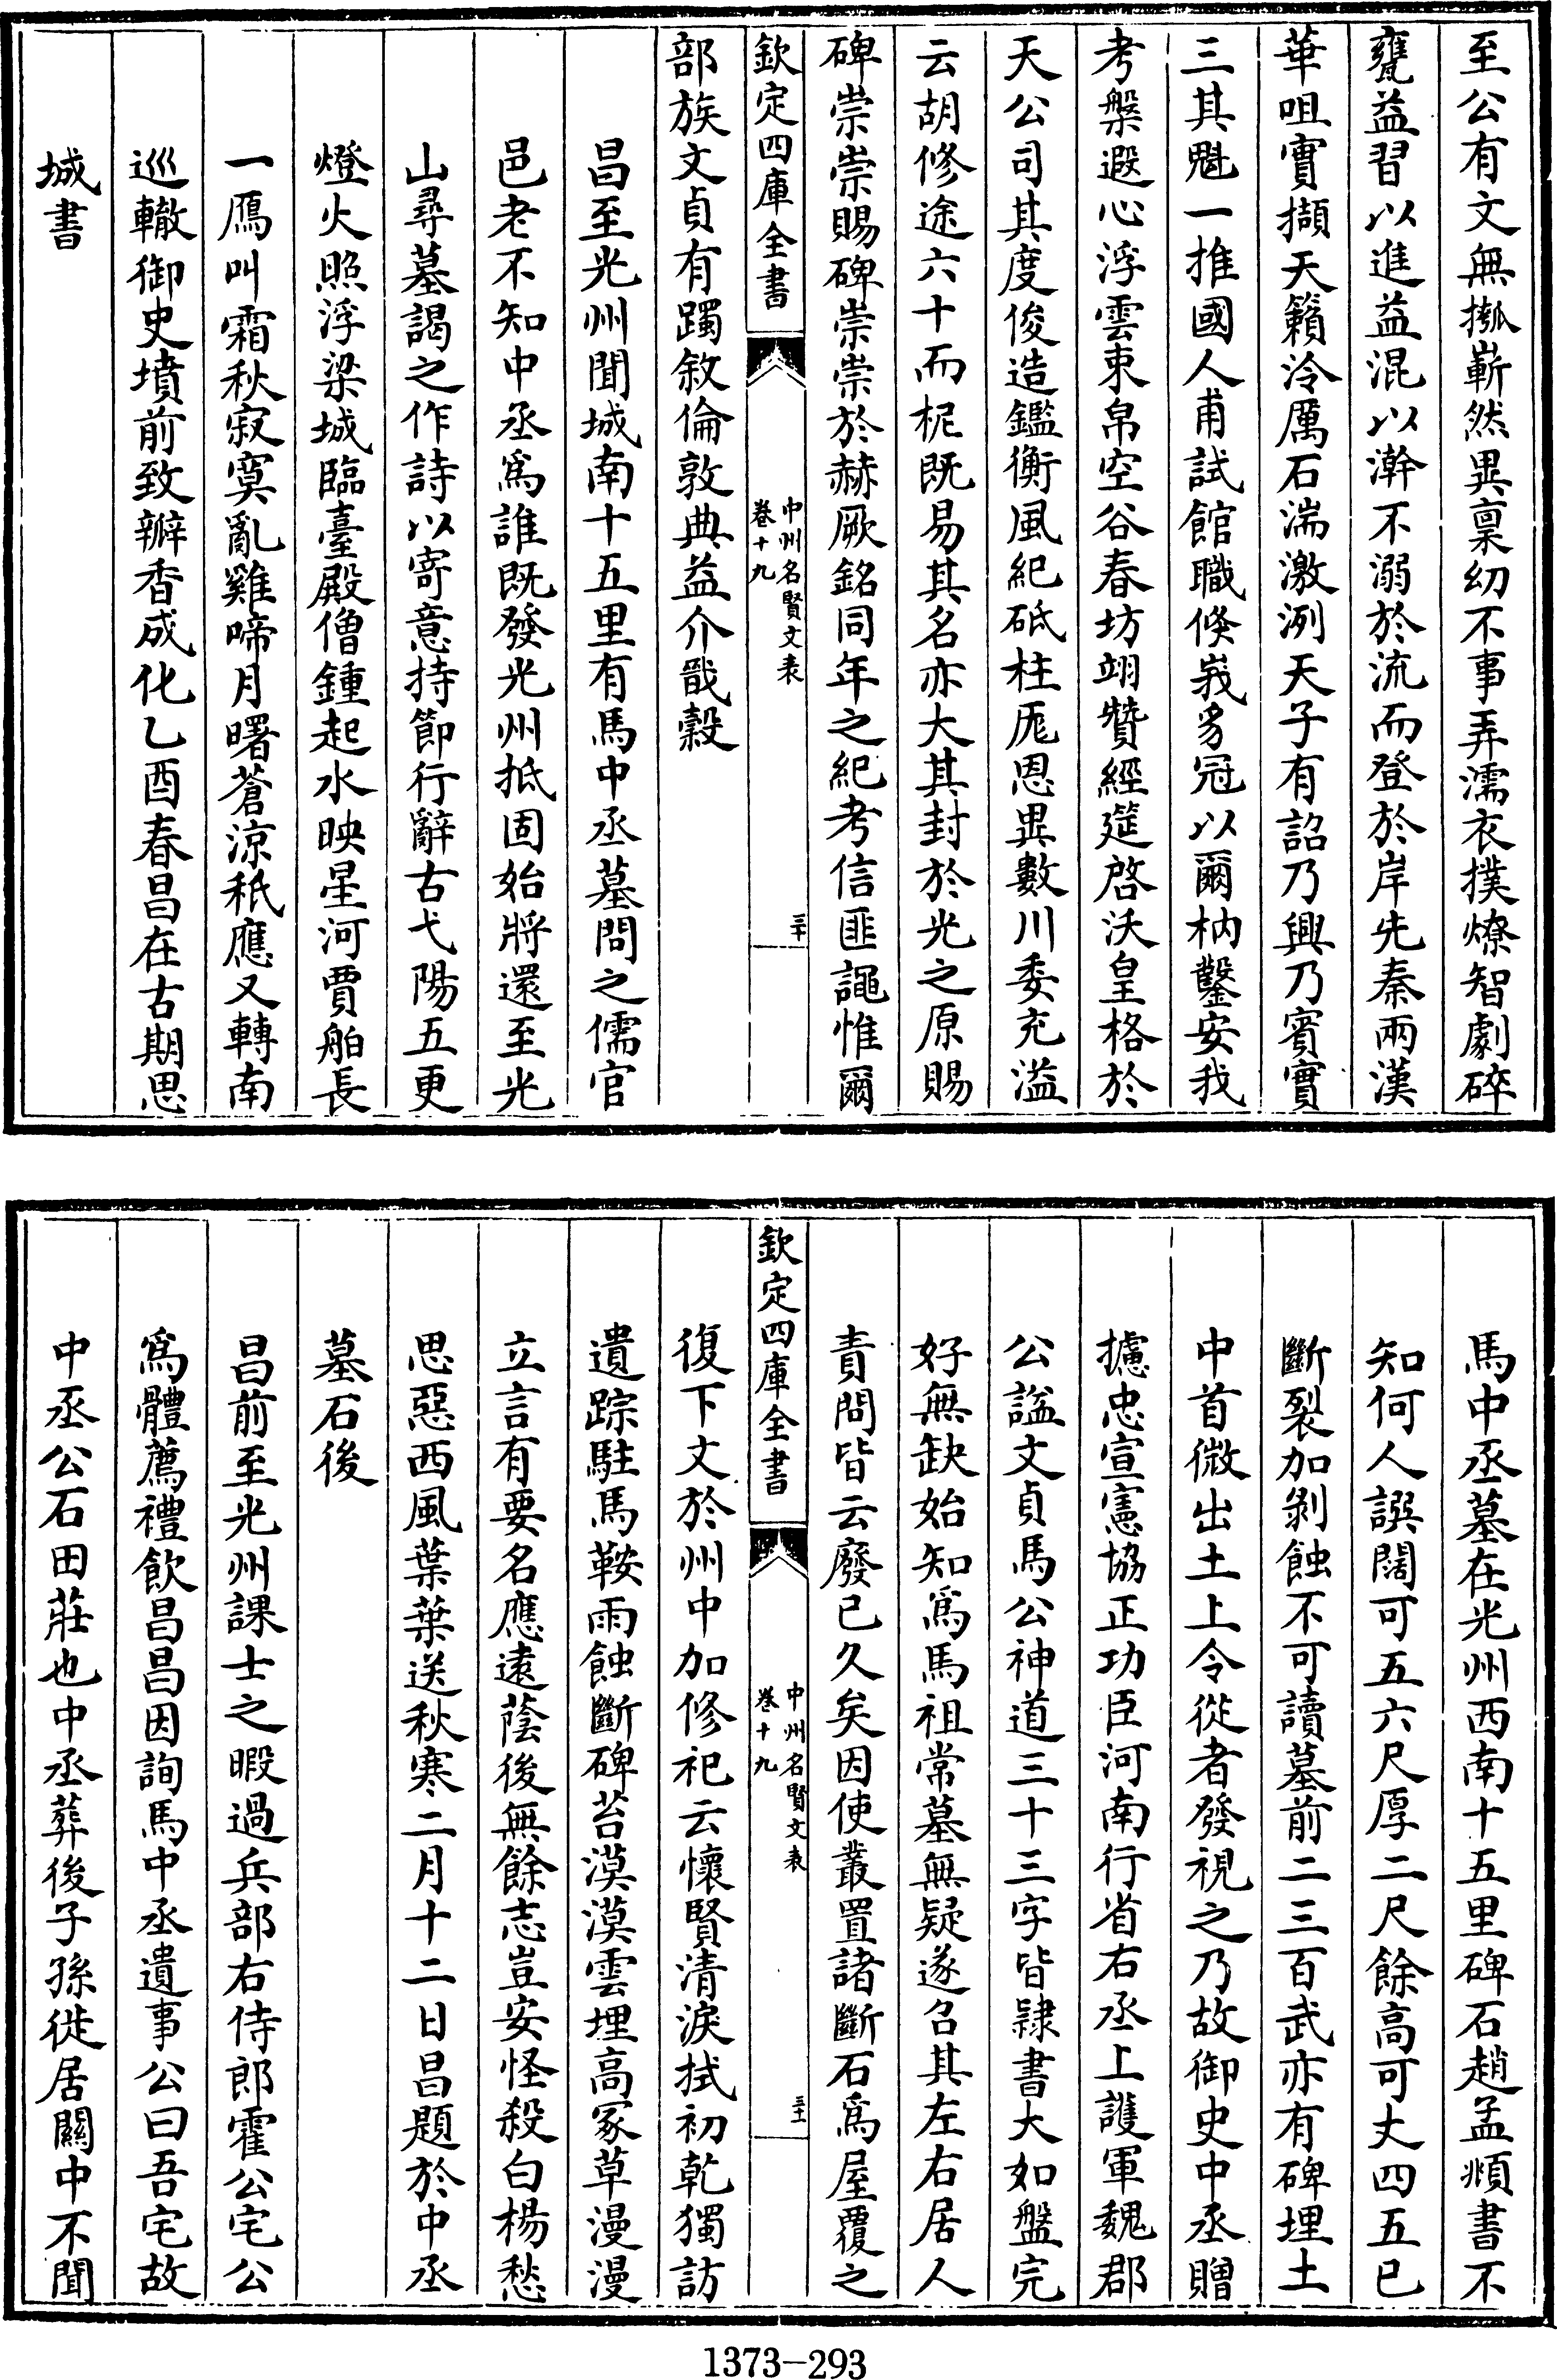 至公有文無㨾嶄然異稟幼不事弄濡衣撲燎智劇碎
甕益習以進益混以澣不溺於流而登於岸先秦兩漢
華咀實擷天籟泠厲石湍激冽天子有詔乃興乃賓實
三其魁一推國人甫試館職倏峩豸冠以爾枘鑿安我
考槃遐心浮雲束帛空谷春坊翊贊經筵啓沃皇格於
天公司其度俊造鑑衡風紀砥柱厖恩異數川委充溢
云胡修途六十而柅既易其名亦大其封於光之原賜
碑崇崇賜碑崇崇於赫厥銘同年之紀考信匪譝惟爾
欽定四庫全書
中州名賢文表
卷十九
三十
部族文貞有躅敘倫敦典益介戩穀
昌至光州聞城南十五里有馬中丞墓問之儒官
邑老不知中丞爲誰既發光州抵固始將還至光
山尋墓謁之作詩以寄意持節行辭古弋陽五更
燈火照浮梁城臨臺殿僧鍾起水映星河賈舶長
一鴈叫霜秋寂寞亂雞啼月曙蒼涼秖應又轉南
巡轍御史墳前致瓣香成化乙酉春昌在古期思
城書
馬中丞墓在光州西南十五里碑石趙孟頫書不
知何人譔闊可五六尺厚二尺餘高可丈四五已
斷裂加剝蝕不可讀墓前二三百武亦有碑埋土
中首微出土上令從者發視之乃故御史中丞贈
攄忠宣憲協正功臣河南行省右丞上護軍魏郡
公謚文貞馬公神道三十三字皆隷書大如盤完
好無缺始知爲馬祖常墓無疑遂召其左右居人
責問皆云廢已久矣因使叢置諸斷石爲屋覆之
欽定四庫全書
中州名賢文表
卷十九
三十一
復下文於州中加修祀云懷賢清淚拭初乾獨訪
遺踪駐馬鞍雨蝕斷碑苔漠漠雲埋高冢草漫漫
立言有要名應遠蔭後無餘志豈安怪殺白楊愁
思惡西風葉葉送秋寒二月十二日昌題於中丞
墓石後
昌前至光州課士之暇過兵部右侍郎霍公宅公
爲體薦禮飲昌昌因詢馬中丞遺事公曰吾宅故
中丞公石田莊也中丞葬後子孫徙居關中不聞
1373-293